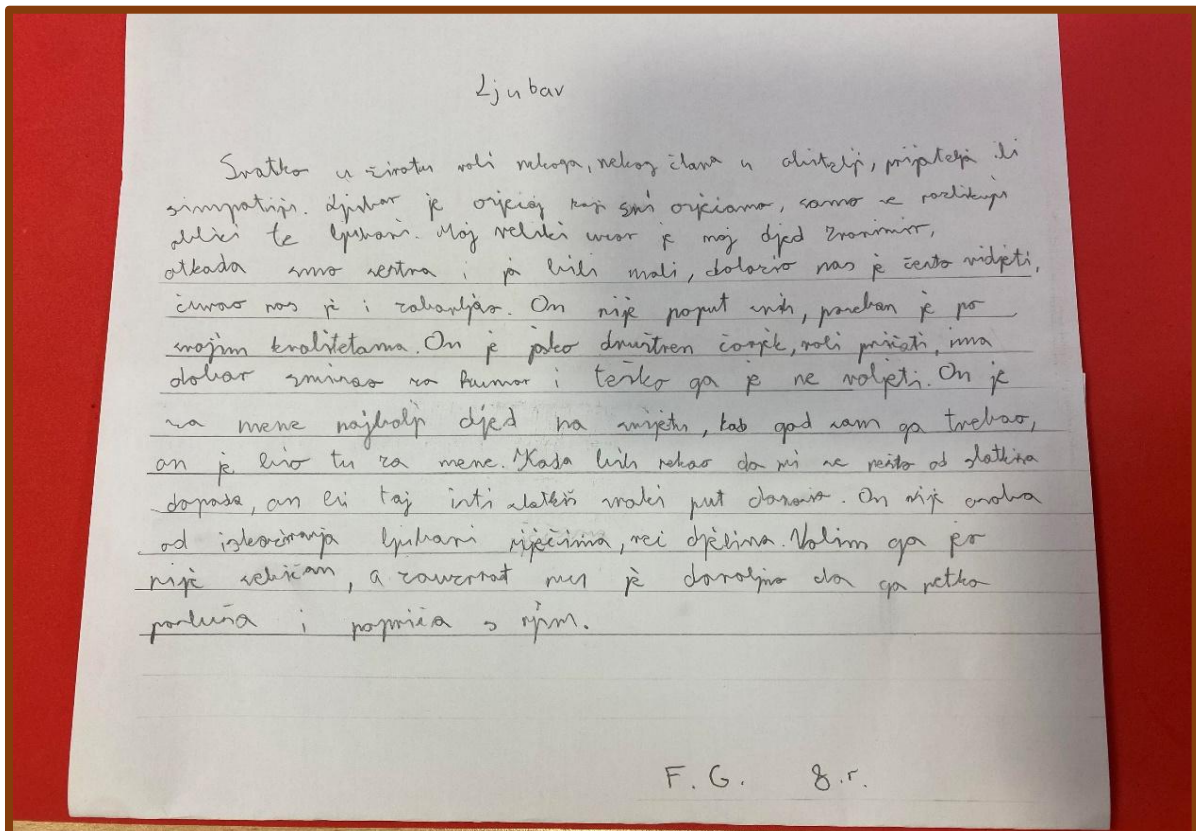 Ljubav
Svatko u životu voli nekoga, nekog člana u obitelji, prijatelja ili
simpatiju. Ljubav je osjećaj koji svi osjećamo, samo se razlikuju
oblici te ljubavi. Moj veliki uzor je moj djed Zvonimir,
otkada smo sestra i ja bili mali, dolazio nas je često vidjeti,
čuvao nas je i zabavljao. On nije poput svih, poseban je po
svojim kvalitetama. On je jako društven čovjek, voli pričati, ima
dobar smisao za humor i teško ga je ne voljeti. On je
za mene najbolji djed na svijetu, kad god sam ga trebao,
on je bio tu za mene. Kada bih rekao da mi se nešto od slatkiša
dopada, on bi taj isti slatkiš svaki put donosio. On nije osoba
od iskazivanja ljubavi riječima, već djelima. Volim ga jer
nije sebičan, a zauzvrat mu je dovoljno da ga netko
posluša i popriča s njim.
F. G. 8.r.